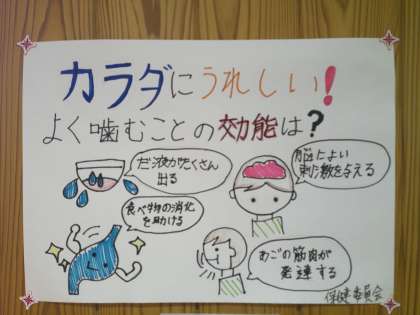 カラダにうれしい!
よく噛むことの効能は?
だ液がたくさん
出る
脳によい
刺激を与える
食べ物の消化
を助ける
あごの筋肉が
発達する
保健委員会